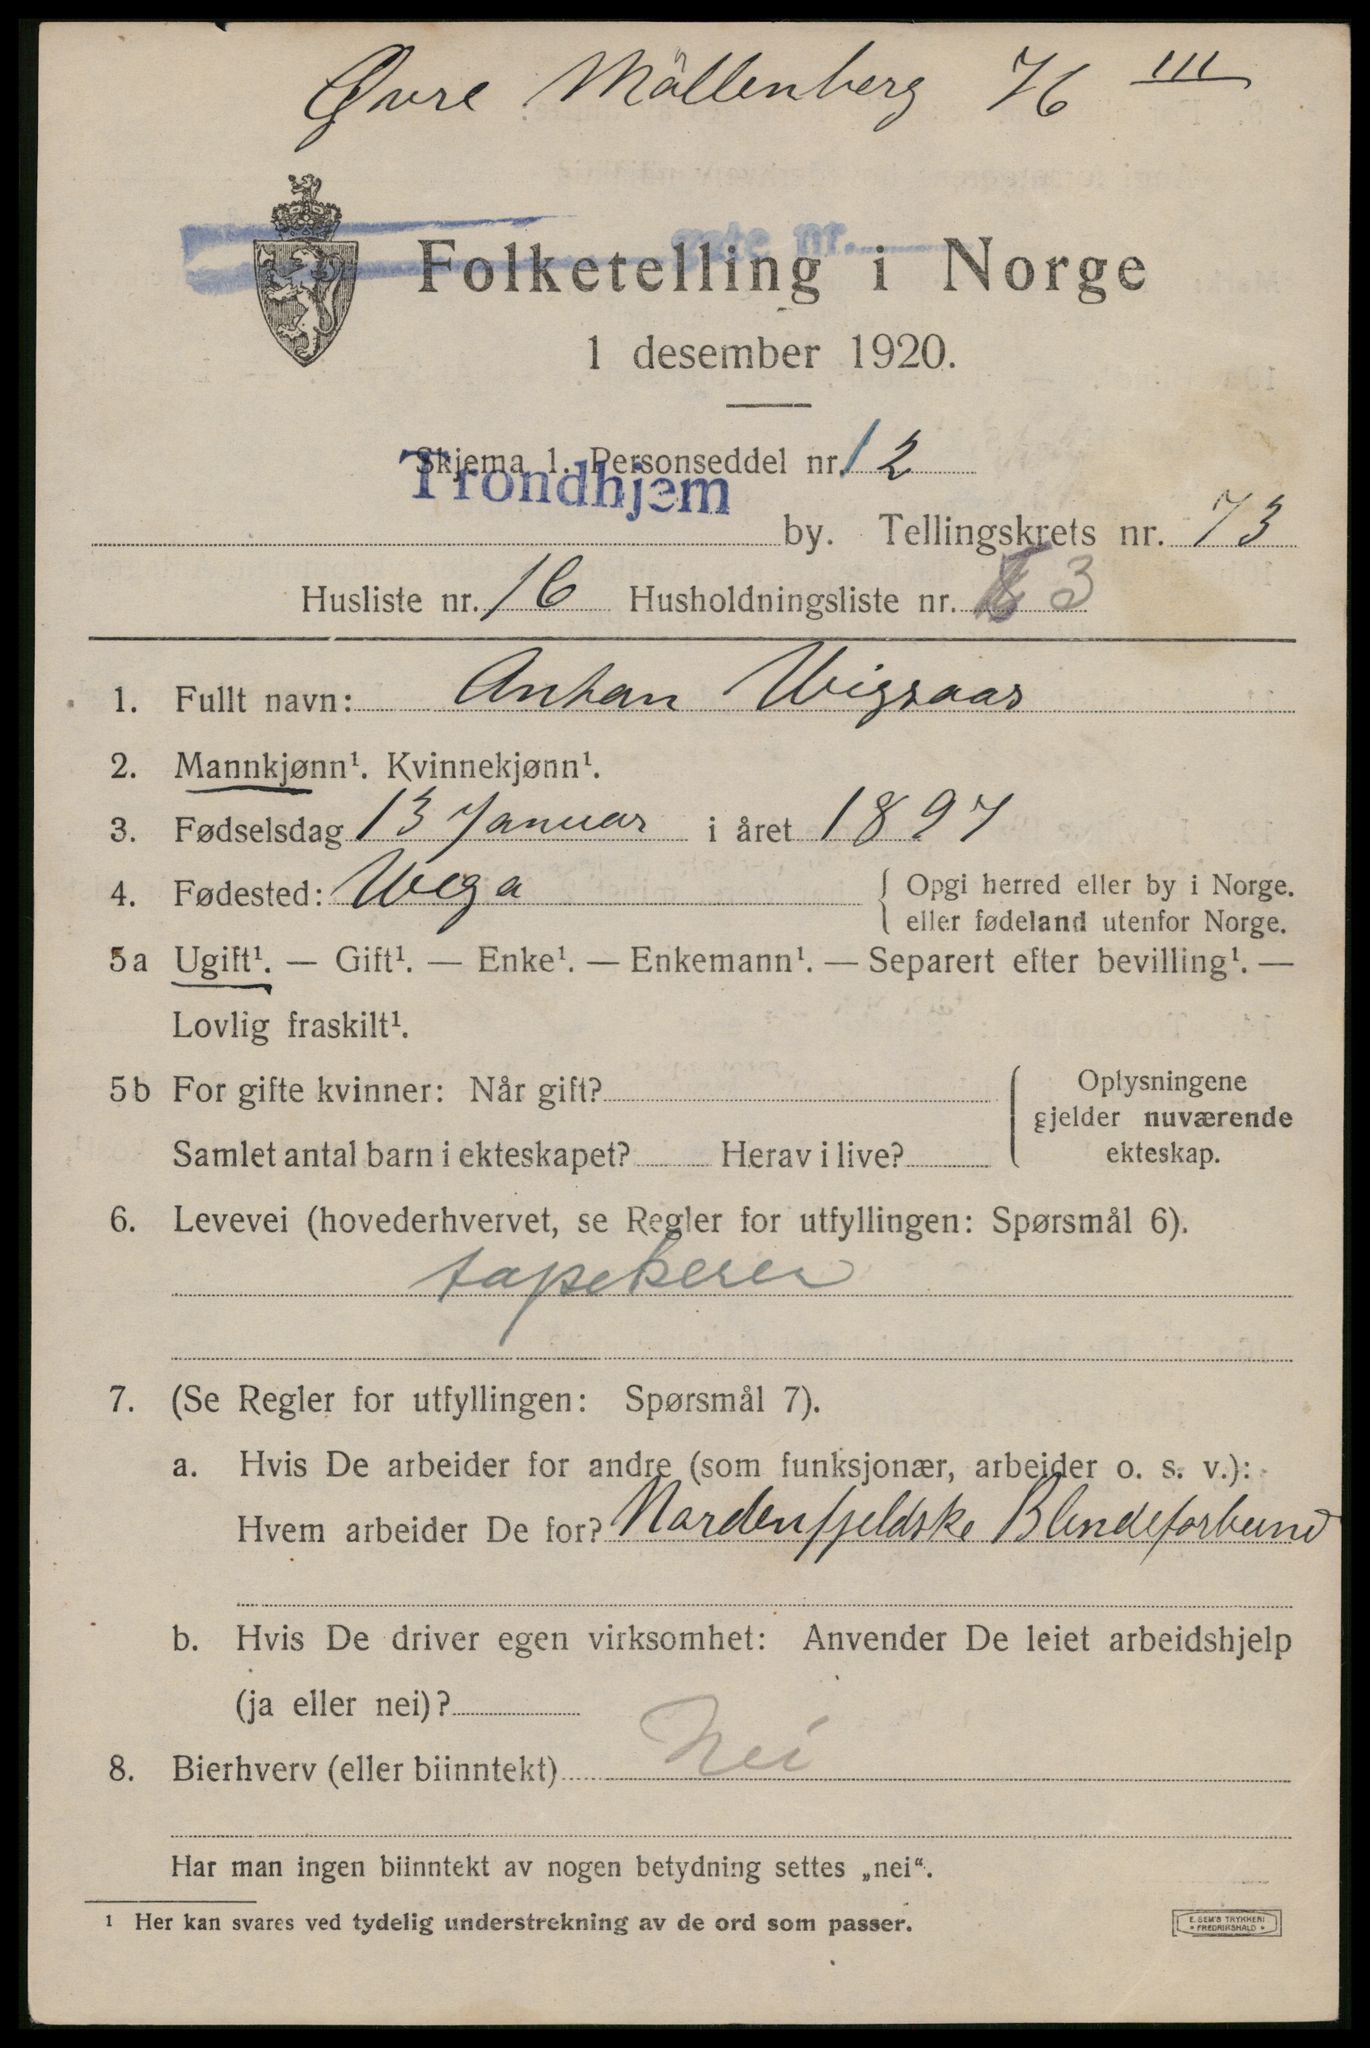 Øvre Möllenberg 76 III
gate nr.
Folketelling i Norge
1 desember 1920.
Skjema 1. Personseddel nr. 12
Trondhjem by. Tellingskrets nr. 73
Husliste nr. 16 Husholdningsliste nr. 3
1. Fullt navn: Anton Wigsaas
2. Mannkjønn¹. Kvinnekjønn¹.
3. Fødselsdag 13 Januar i året 1897
4. Fødested: Wega { Opgi herred eller by i Norge.
eller fødeland utenfor Norge.
5a Ugift¹. — Gift¹. — Enke¹. — Enkemann¹. — Separert efter bevilling¹. —
Lovlig fraskilt¹.
5b For gifte kvinner: Når gift?
Oplysningene
gjelder nuværende
ekteskap.
Samlet antal barn i ekteskapet? Herav i live?
6. Levevei (hovederhvervet, se Regler for utfyllingen: Spørsmål 6).
tapeserer
7. (Se Regler for utfyllingen: Spørsmål 7).
a. Hvis De arbeider for andre (som funksjonær, arbeider o. s. v.):
Hvem arbeider De for? Nordenfjeldske Blindeforbund
b. Hvis De driver egen virksomhet: Anvender De leiet arbeidshjelp
(ja eller nei)?
8. Bierhverv (eller biinntekt) Nei
Har man ingen biinntekt av nogen betydning settes „nei“.
¹ Her kan svares ved tydelig understrekning av de ord som passer.
E. SEM'S TRYKKERI
FREDRIKSHALD